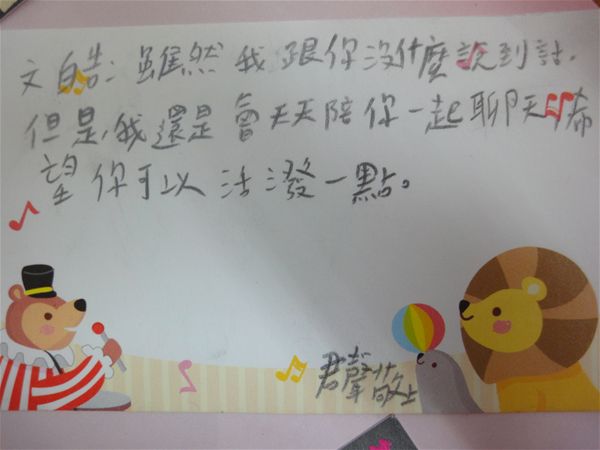 文皓：雖然我跟你沒什麼說到話，
但是，我還是會天天陪你一起聊天，希
望你可以活潑一點。
君聲敬上